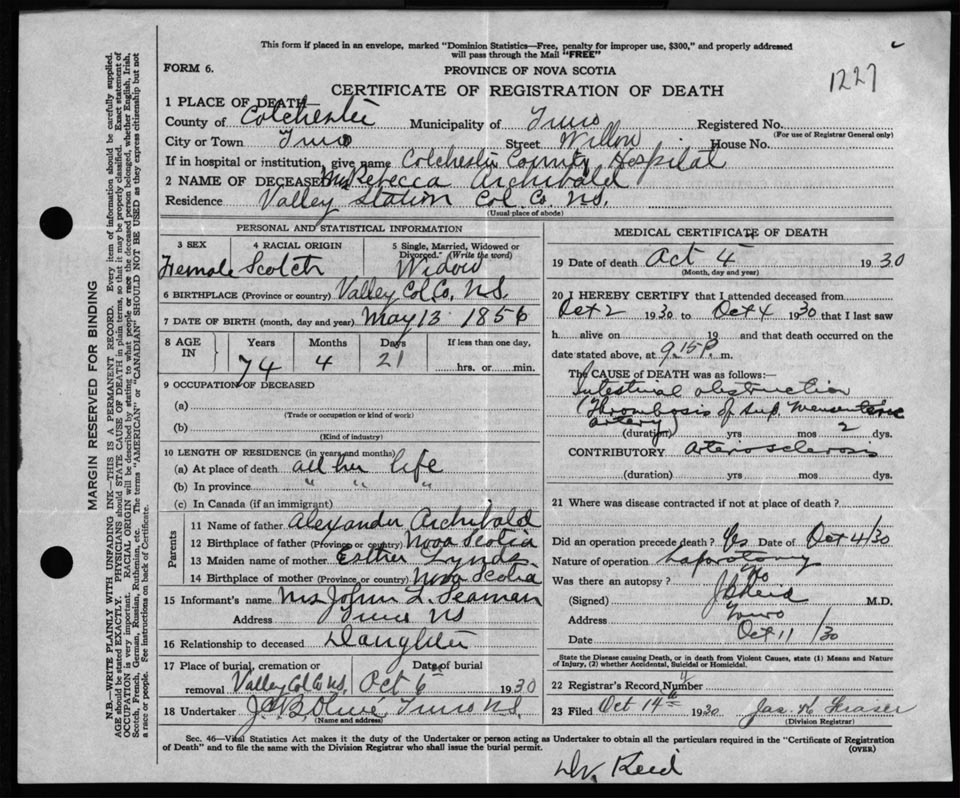 This form if placed in an envelope, marked "Dominion Statistics—Free, penalty for improper use, $300," and properly addressed
will pass through the Mail "FREE"
FORM 6.
PROVINCE OF NOVA SCOTIA
1227
CERTIFICATE OF REGISTRATION OF DEATH
1 PLACE OF DEATH—
County of Colchester Municipality of Truro Registered No.
(For use of Registrar General only)
City or Town Truro Street Willow House No.
If in hospital or institution, give name Colchester County Hospital
2 NAME OF DECEASED Mrs Rebecca Archibald
Residence Valley Station Col. Co. N.S.
(Usual place of abode)
PERSONAL AND STATISTICAL INFORMATION
3 SEX 4 RACIAL ORIGIN 5 Single, Married, Widowed or
Divorced." (Write the word)
Female Scotch Widow
6 BIRTHPLACE (Province or country) Valley Col. Co. N.S.
7 DATE OF BIRTH (month, day and year) May 13 1856
8 AGE IN Years Months Days If less than one day,
74 4 21 hrs. or min.
9 OCCUPATION OF DECEASED
(a)
(Trade or occupation or kind of work)
(b)
(Kind of industry)
10 LENGTH OF RESIDENCE (in years and months)
(a) At place of death all her life
(b) In province " " "
(c) In Canada (if an immigrant)
Parents
11 Name of father Alexander Archibald
12 Birthplace of father (Province or country) Nova Scotia
13 Maiden name of mother Esther Lynds
14 Birthplace of mother (Province or country) Nova Scotia
15 Informant's name Mrs John L. Seaman
Address Truro NS
16 Relationship to deceased Daughter
17 Place of burial, cremation or Date of burial
removal Valley Col Co N.S. Oct 6 1930
18 Undertaker Truro N.S.
(Name and address)
MEDICAL CERTIFICATE OF DEATH
19 Date of death Oct 4 1930
(Month, day and year)
20 I HEREBY CERTIFY that I attended deceased from
Oct 2 1930 to Oct 4 1930 that I last saw
h alive on 19 and that death occurred on the
date stated above, at 9.15 P. m.
The CAUSE of DEATH was as follows:
Intestinal obstruction
(Thrombosis of Sup. Mesenteric
artery)
(duration) yrs mos 2 dys.
CONTRIBUTORY Arterosclerosis
(duration) yrs mos dys.
21 Where was disease contracted if not at place of death?
Did an operation precede death? Yes Date of Oct 4/30
Nature of operation Laporotomy
Was there an autopsy? No
(Signed) Reid M.D.
Address Truro
Date Oct 11/30
State the Disease causing Death, or in death from Violent Causes, state (1) Means and Nature
of Injury, (2) whether Accidental, Suicidal or Homicidal.
22 Registrar's Record Number
23 Filed Oct 14th 1930 Jas. Fraser
(Division Registrar)
Sec. 46—Vital Statistics Act makes it the duty of the Undertaker or person acting as Undertaker to obtain all the particulars required in the "Certificate of Registration
of Death" and to file the same with the Division Registrar who shall issue the burial permit.
(OVER)
Dr. Reid
MARGIN RESERVED FOR BINDING
N.B.—WRITE PLAINLY WITH UNFADING INK—THIS IS A PERMANENT RECORD. Every item of information should be carefully supplied.
AGE should be stated EXACTLY. PHYSICIANS should STATE CAUSE OF DEATH in plain terms, so that it may be properly classified. Exact statement of
OCCUPATION is very important. RACIAL ORIGIN will be described by stating to what people or race the deceased person belonged, whether English, Irish,
Scotch, French, German, Russian, Ruthenian, etc. The terms "AMERICAN" or "CANADIAN" SHOULD NOT BE USED as they express citizenship but not
a race or people. See instructions on back of Certificate.